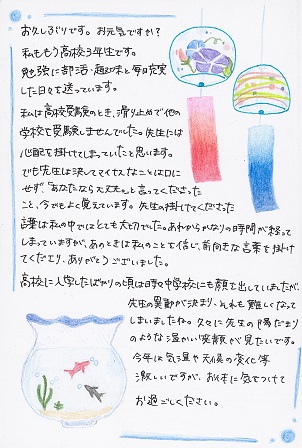 お久しぶりです。お元気ですか？
私ももう高校3年生です。
勉強に部活・趣味と毎日充実
した日々を送っています。
私は高校受験のとき、滑り止めで他の
学校を受験しませんでした。先生には
心配を掛けてしまっていたと思います。
でも先生は決してマイナスなことは口に
せず、"あなたなら大丈夫。"と言ってくださった
こと、今でもよく覚えています。先生の掛けてくださった
言葉は私の中ではとても大切でした。あれからかなりの時間が経って
しまっていますが、あのときは私のことを信じ、前向きな言葉を掛け
てくださり、ありがとうございました。
高校に入学したばかりの頃は時々中学校にも顔を出していましたが、
先生の異動が決まり、それも難しくなって
しまいましたね。久々に先生の陽だまり
のような温かい笑顔が見たいです。
今年は気温や天候の変化等
激しいですが、お体に気をつけて
お過ごしください。